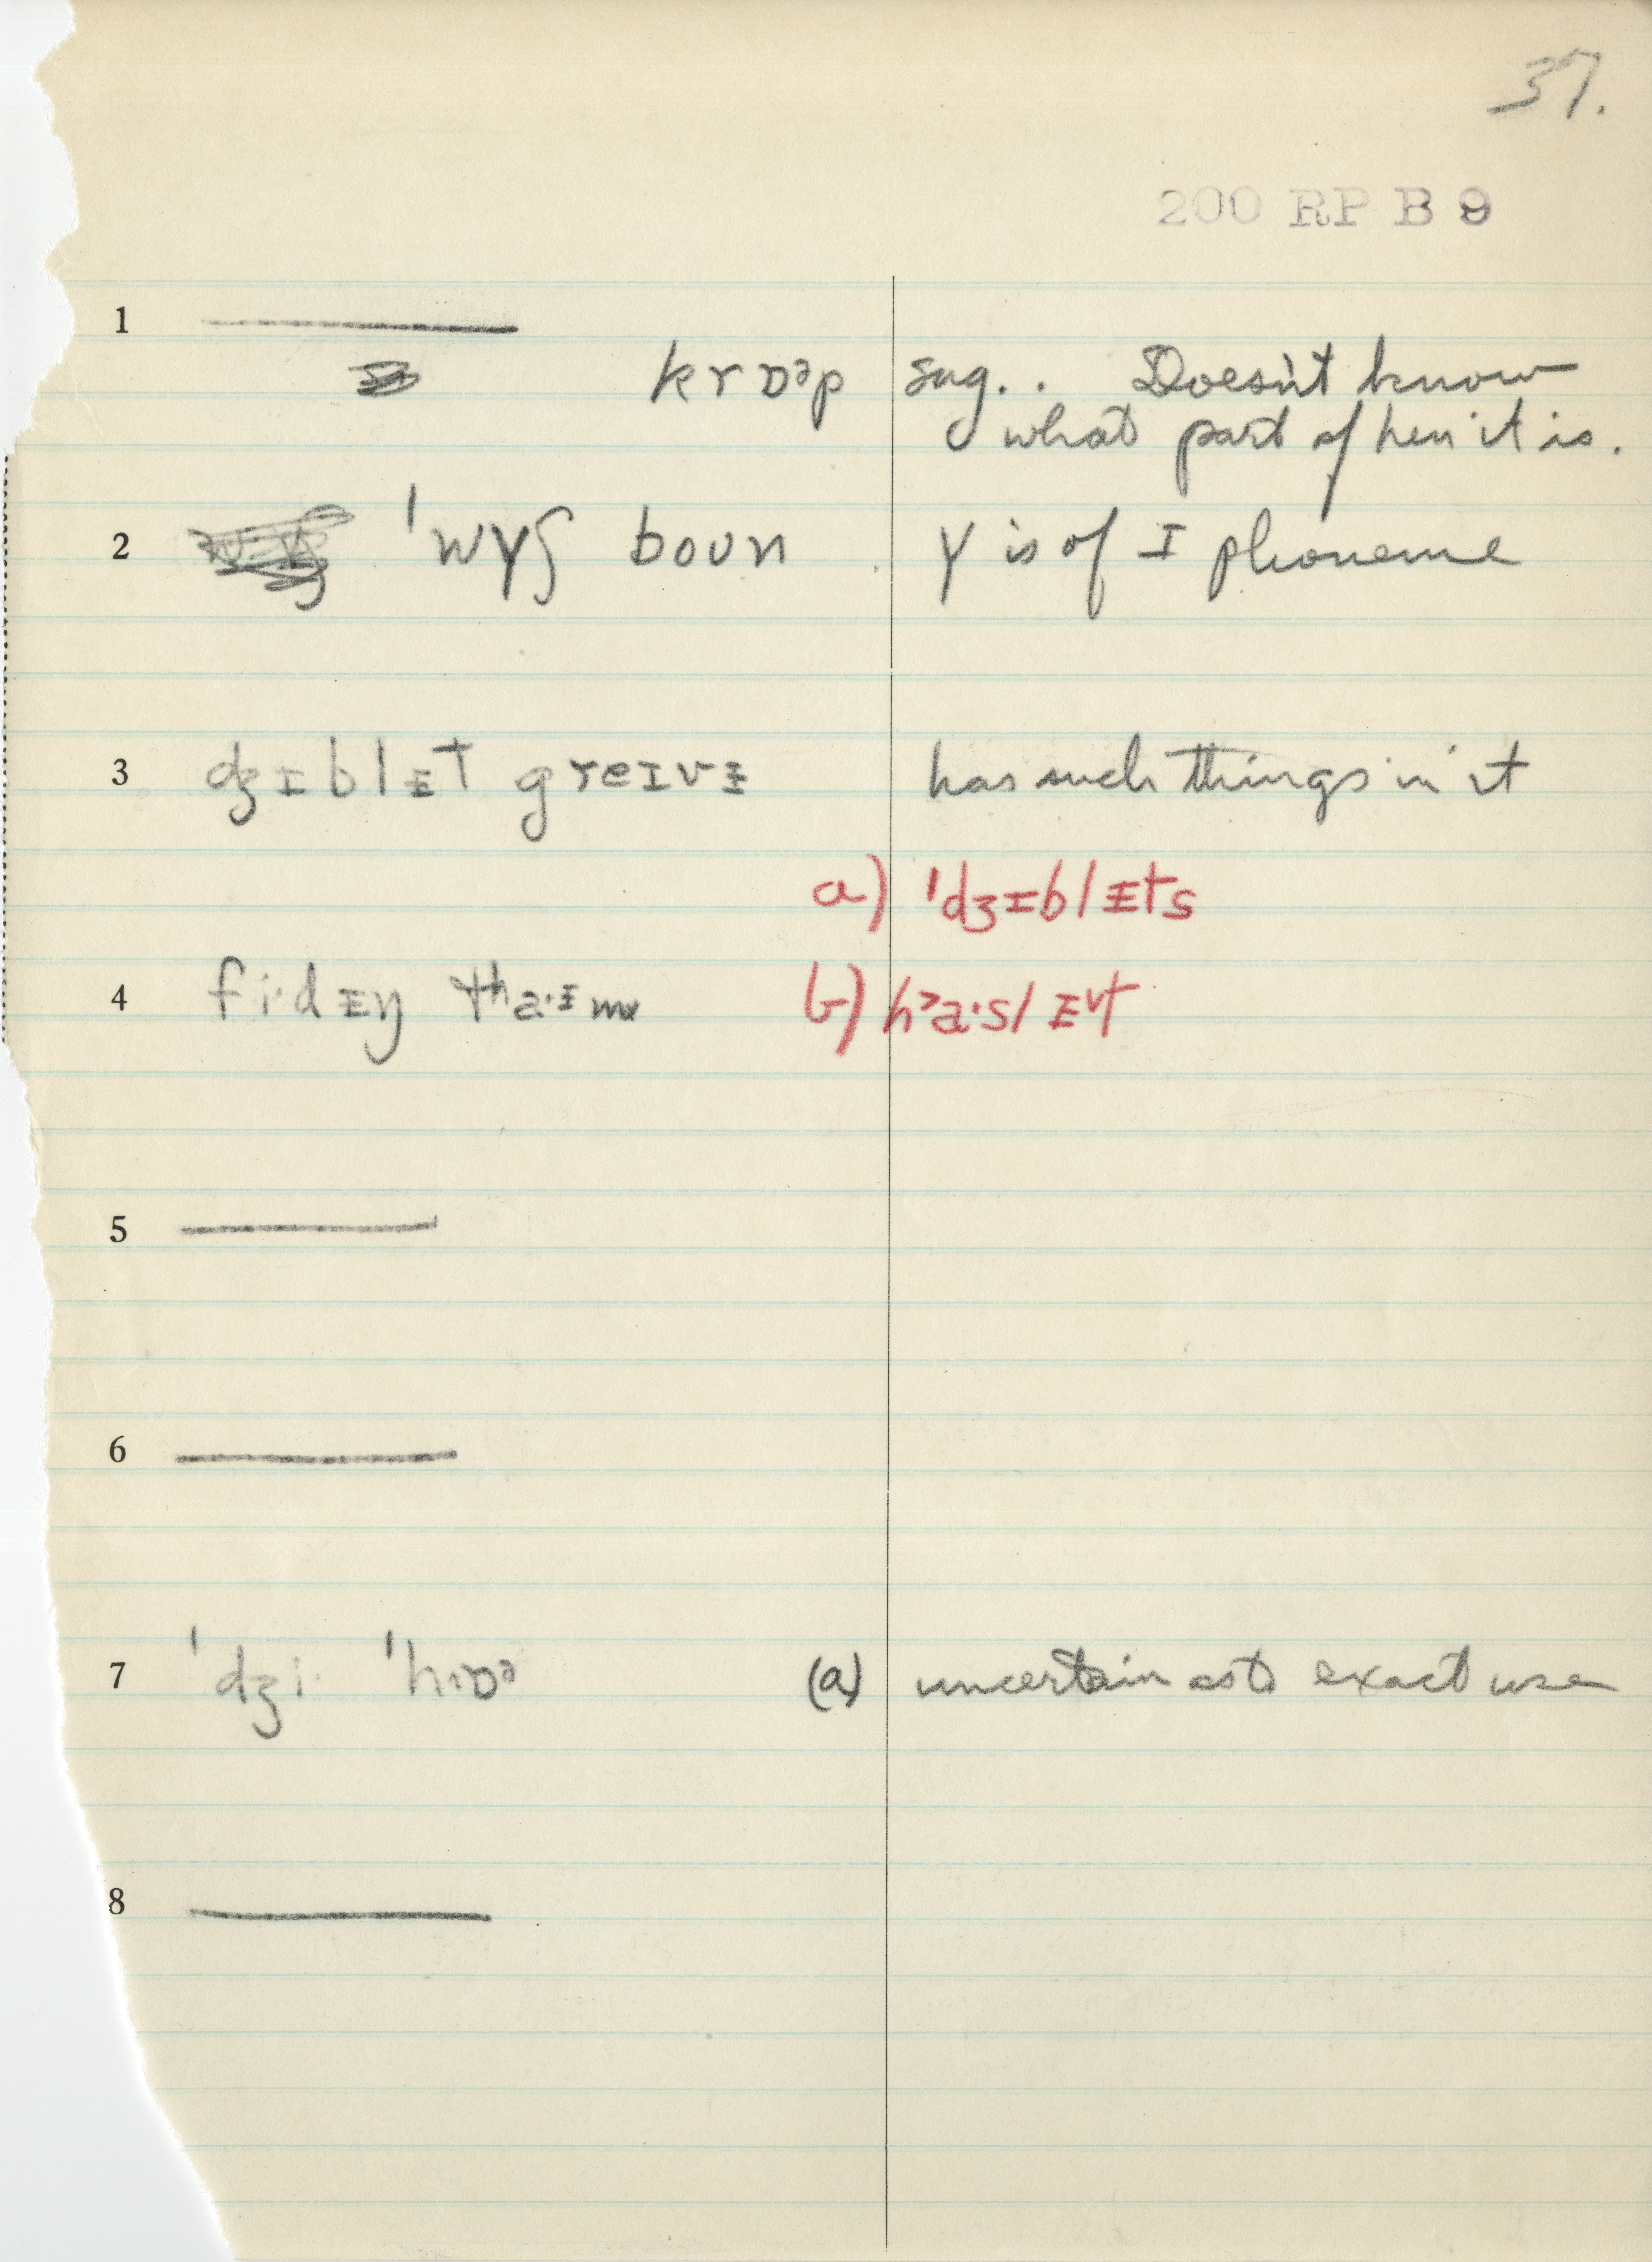 37.
200 RP B 9
1
krɒᵊp sug.. Doesn't know
what part of hen it is.
2 ˈwʏʃ boun ʏ is of ɪ phoneme
3 dʒɪblᵻt greɪvᵻ has such things in it
a) ˈdʒɪblᵻts
4 fi·dᵻŋ tʰa·ᵻm b) h˃a·slᵻt
5
6
7 ˈdʒi· ˈhɒᵊ (a) uncertain as to exact use
8